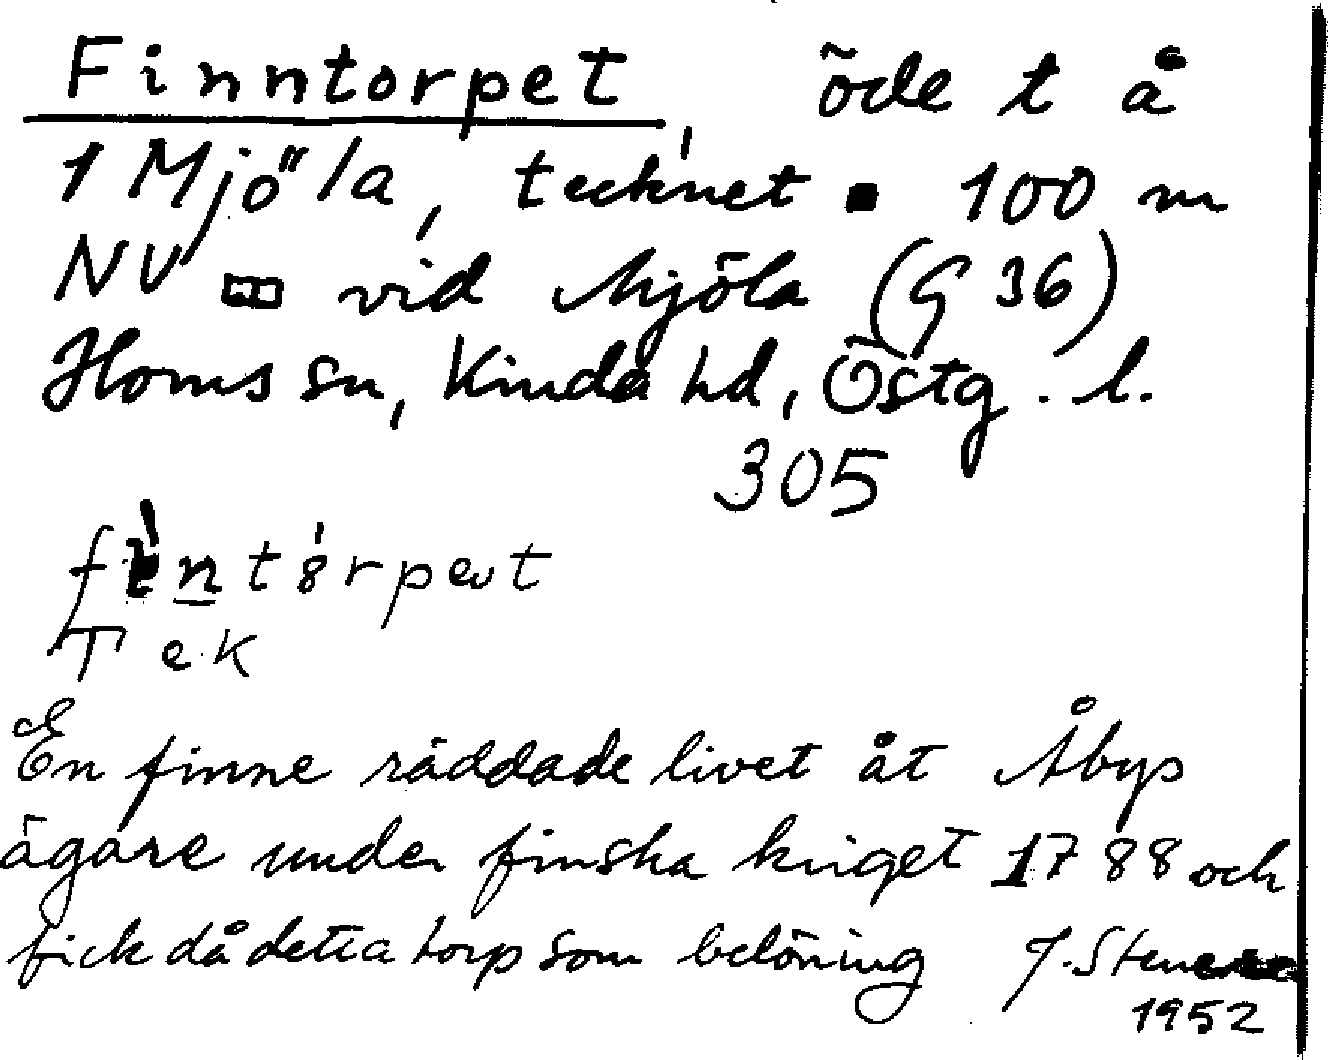 Finntorpet, öde t å
1 Mjöla, tecknet ▪ 100 m
NV vid Mjöla (G 36)
Horns sn, Kinda hd, Östg. l.
305
Tek
En finne räddade livet åt Åbys
ägare under finska kriget 1788 och
fick då detta torp som belöning J.
1952